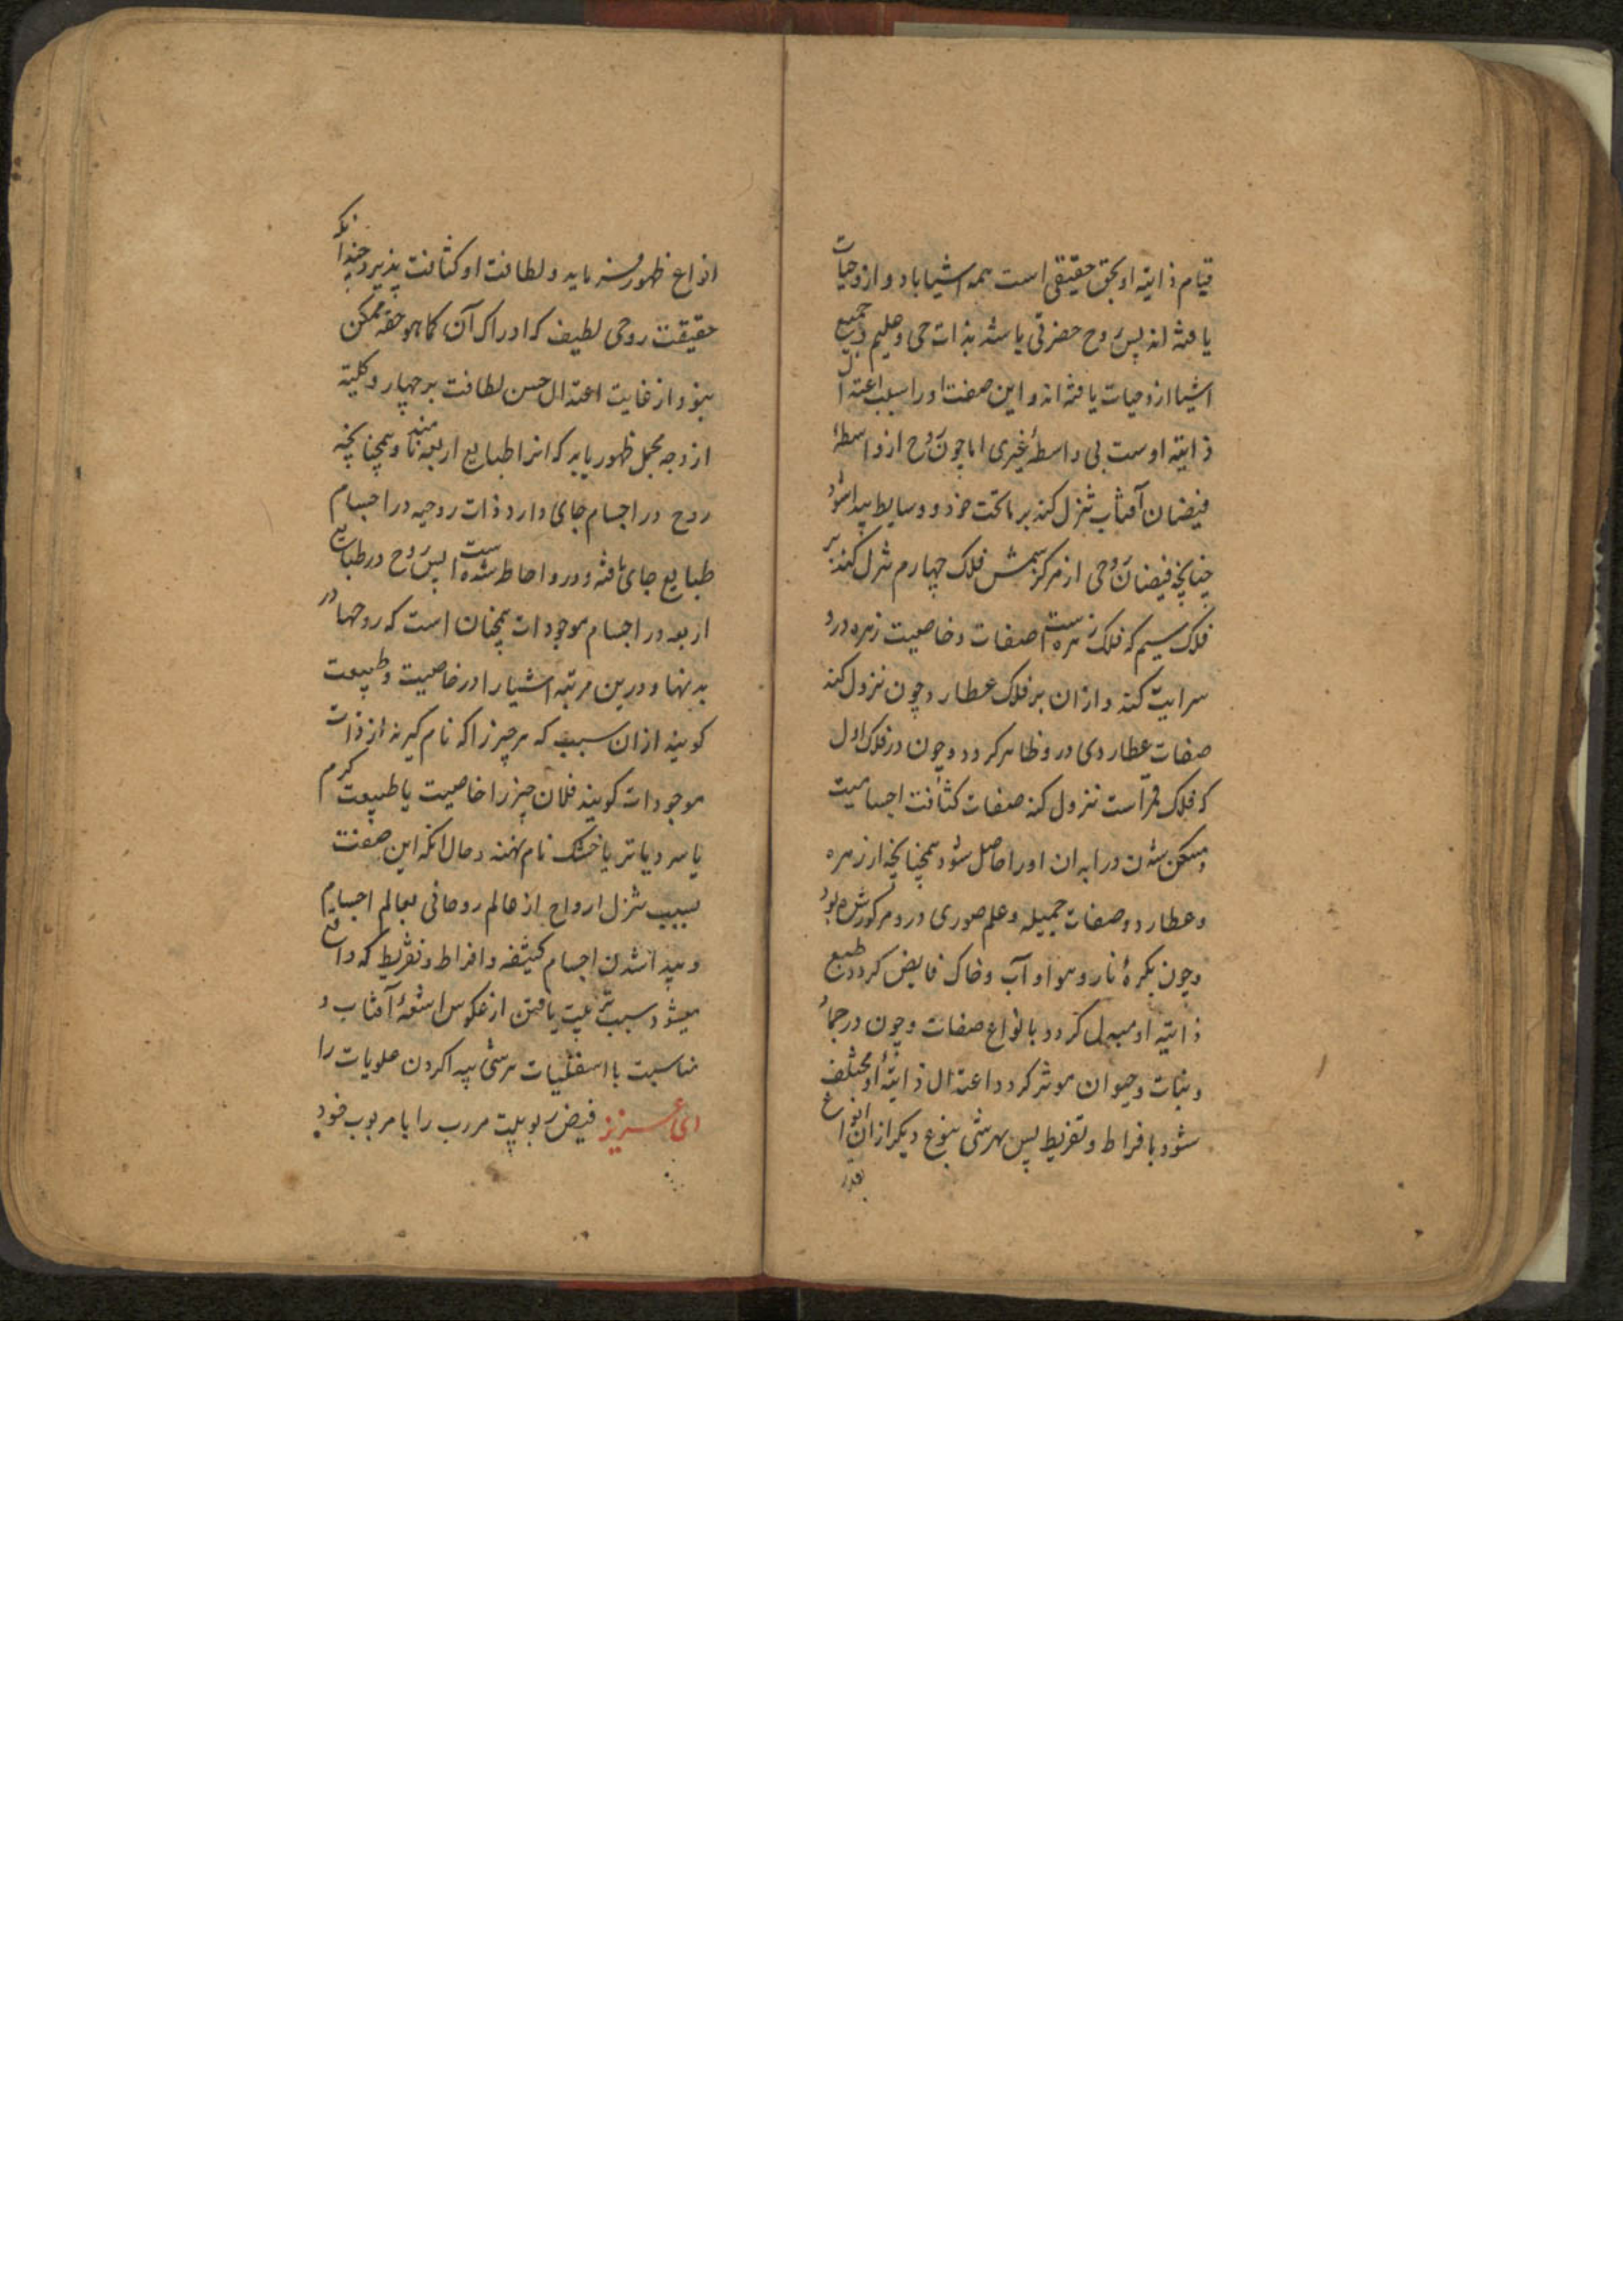 قیام ذاتیه او بحق حقیقی است همه اشیا باد و ازو حیات
یافته اند پس روح حضرتی باشد بذات حی و علیم و جمیع
اشیا ازو حیات یافته اند و این صفت او را بسبب اعتدال
ذاتیه اوست بی واسطهٔ غیری اما چون روح از واسطهٔ
فیضان آفتاب تنزل کند بر ماتحت خود و وسایط پیدا شود
چنانچه فیضان روحی از مرکز شمس فلک چهارم تنزل کند بر
فلک سیم که فلک زهره است صفات و خاصیت زهره درو
سرایت کند و از ان بر فلک عطارد و چون نزول کند
صفات عطاردی درو ظاهر کردد و چون در فلک اول
که فلک قمر است نزول کند صفات کثافت اجسامیت
و متمکن شدن در ابدان او را حاصل شود همچنانچه از زهره
و عطارد و صفات جمیله و علم صوری درو مرکوز شده بود
و چون بکرهٔ نار و هوا و آب و خاک فایض کردد طبع
ذاتیه او مبدل کردد بانواع صفات و چون در جماد
و نبات و حیوان موثر کردد اعتدال ذاتیهٔ او مختلف
شود بافراط و تفریط پس بهر شی بنوع دیکر از ان انواع
انواع ظهور فرماید و لطافت او کثافت پذیرد چندانکه
حقیقت روحی لطیف که ادراک آن کما هو حقه ممکن
نبود از غایت اعتدال حسن لطافت بر چهار و کلیة
از وجه مجمل ظهور یابد که انرا طبایع اربعه نامند و همچنانچه
روح در اجسام جای دارد ذات روحیه در اجسام
طبایع جای یافته و درو احاطه شده است پس روح در طبایع
اربعه در اجسام موجودات همچنان است که روحها در
بدنها و درین مرتبه اشیا را در خاصیت و طبیعت
کویند از ان سبب که هر چیز را که نام کیرند از ذات
موجودات کویند فلان چیز را خاصیت یا طبیعت کرم
یا سرد یا تر یا خشک نام نهند و حال انکه این صفت
بسبب تنزل ارواح از عالم روحانی بعالم اجسام
و پیدا شدن اجسام کثیفه و افراط و تفریط که واقع
میشود سبب تربیت یافتن از عکوس اشعهٔ آفتاب و
مناسبت با اسفلیات هر شی پیدا کردن علویات را
ای عزیز فیض ربوبیت مر رب را با مربوب خود